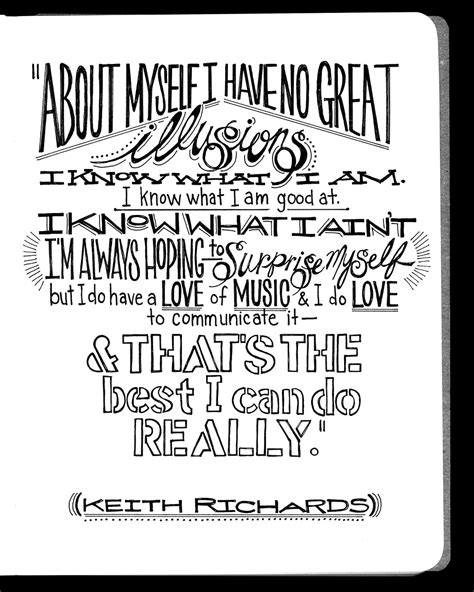 "ABOUT MYSELF I HAVE NO GREAT
illusions
I KNOW WHAT I AM.
I know what I am good at.
I KNOW WHAT I AIN'T
I'M ALWAYS HOPING to Surprise Myself
but I do have a LOVE of MUSIC & I do LOVE
to communicate it—
& THAT'S THE
best I can do
REALLY."
(KEITH RICHARDS)